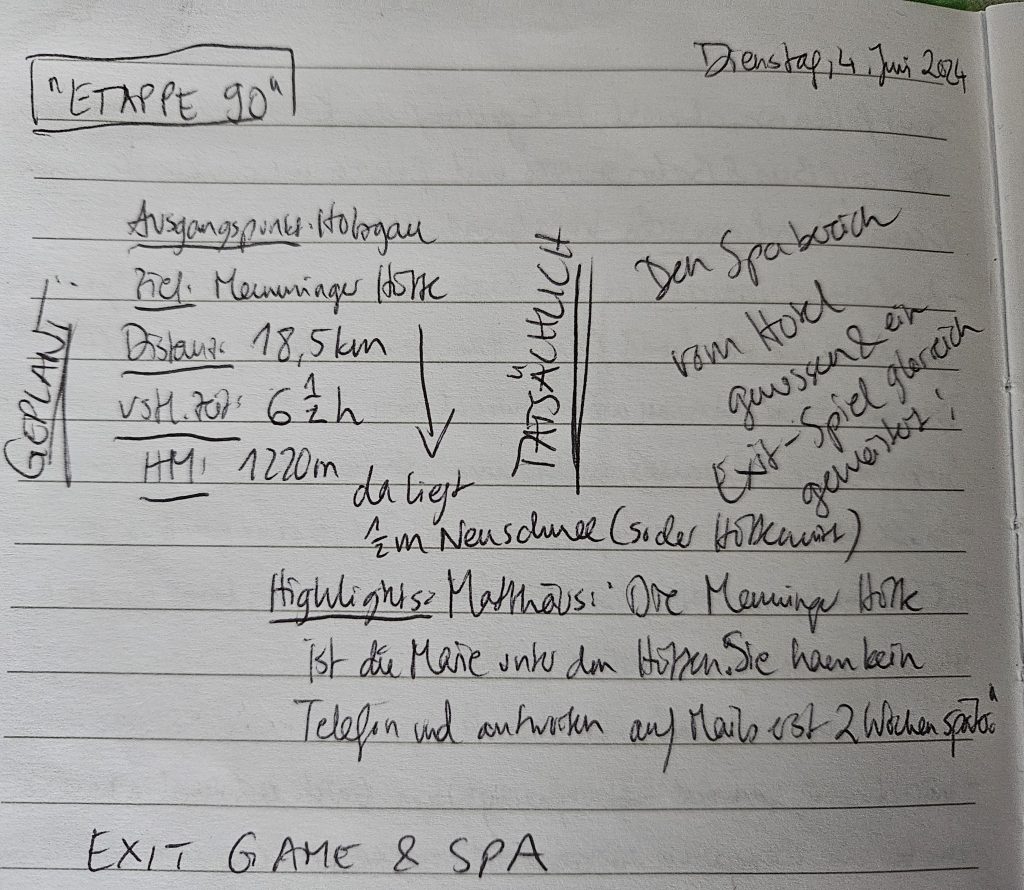 Dienstag, 4. Juni 2024
"ETAPPE 90"
GEPLANT:
Ausgangspunkt: Holzgau
Ziel: Memminger Hütte
Distanz: 18,5 km
vstl. Zeit: 6 ½ h
HM: 1220m
da liegt
½ m Neuschnee (so der Hüttenwirt)
TATSÄCHLICH
Den Spabereich
vom Hotel
genossen & ein
Exit-Spiel glorreich
gemeistert!
Highlights: Matthäus: "Die Memminger Hütte
ist die Marie unter den Hütten. Sie haben kein
Telefon und antworten auf Mails erst 2 Wochen später"
EXIT GAME & SPA